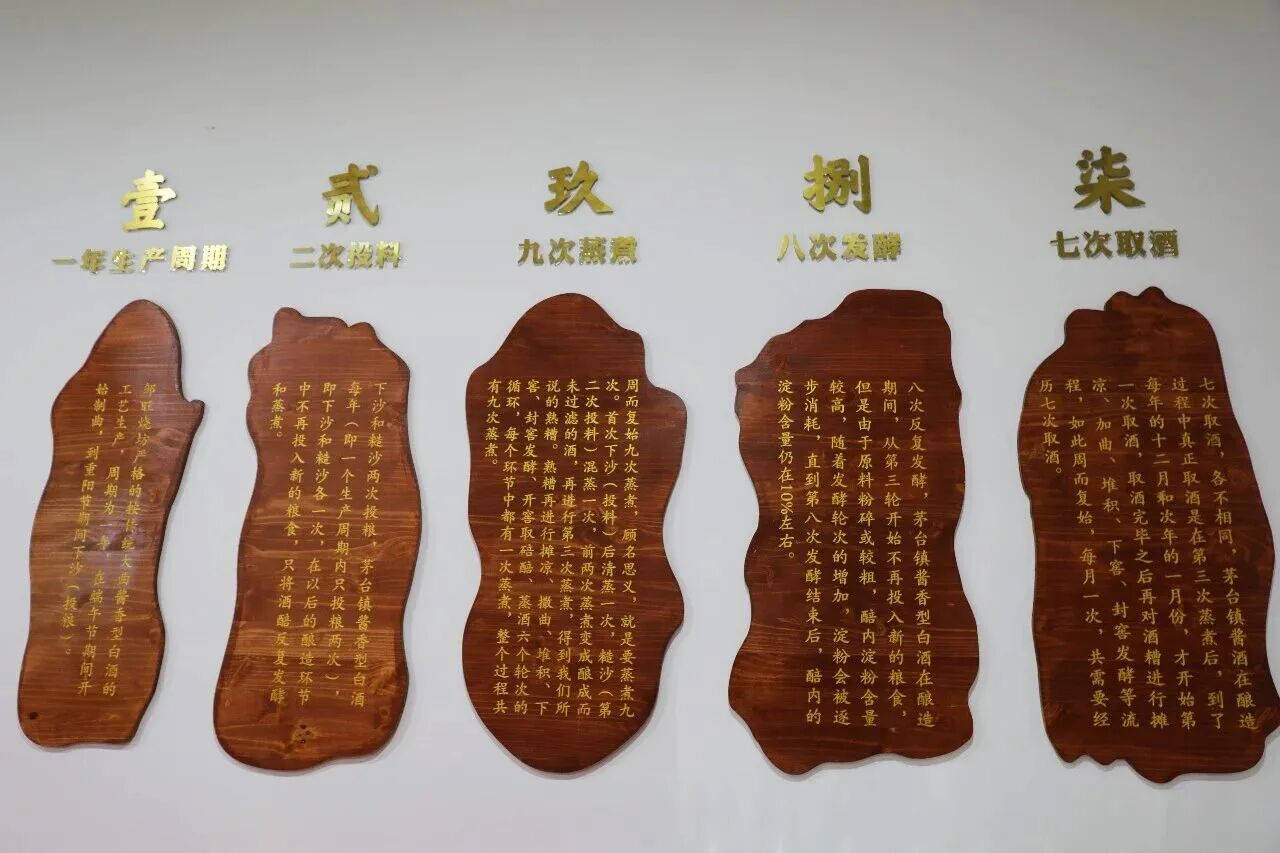 壹
一年生产周期
邹旺烧坊严格的按传统大曲酱香型白酒的
工艺生产，周期为一年，在端午节期间开
始制曲，到重阳节期间下沙（投粮）。
贰
二次投料
下沙和糙沙两次投粮，茅台镇酱香型白酒
每年（即一个生产周期内只投粮两次），
即下沙和糙沙各一次，在以后的酿造环节
中不再投入新的粮食，只将酒醅反复发酵
和蒸煮。
玖
九次蒸煮
周而复始九次蒸煮，顾名思义，就是要蒸煮九
次。首次下沙（投料）后清蒸一次，糙沙（第
二次投料）混蒸一次，前两次蒸煮变成酿成而
未过滤的酒，再进行第三次蒸煮，得到我们所
说的熟糟。熟糟再进行摊凉、撒曲、堆积、下
窖、封窖发酵、开窖取碚醅、蒸酒六个轮次的
循环，每个环节中都有一次蒸煮，整个过程共
有九次蒸煮。
捌
八次发酵
八次反复发酵，茅台镇酱香型白酒在酿造
期间，从第三轮开始不再投入新的粮食，
但是由于原料粉碎或较粗，醅内淀粉含量
较高，随着发酵轮次的增加，淀粉会被逐
步消耗，直到第八次发酵结束后，醅内的
淀粉含量仍在10%左右。
柒
七次取酒
七次取酒，各不相同，茅台镇酱酒在酿造
过程中真正取酒是在第三次蒸煮后，到了
每年的十二月和次年的一月份，才开始第
一次取酒，取酒完毕之后再对酒糟进行摊
凉、加曲、堆积、下窖、封窖发酵等流
程，如此周而复始，每月一次，共需要经
历七次取酒。